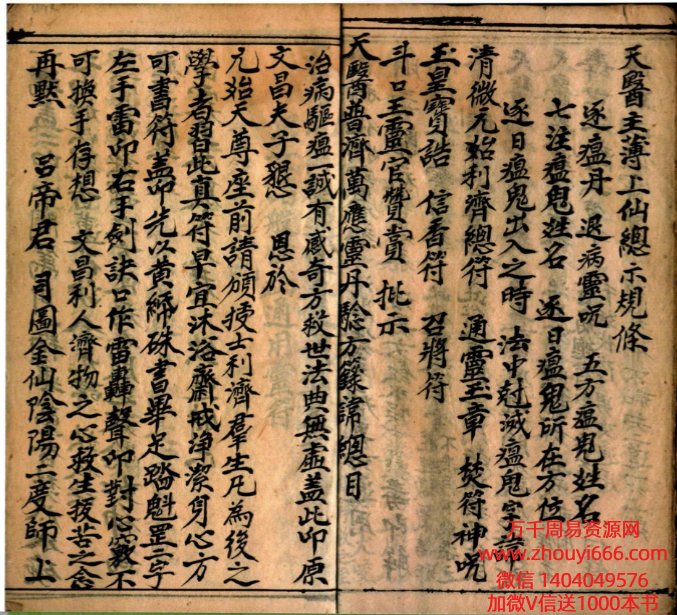 天醫主薄上仙總示規條
逐瘟丹 退病靈呪 五方瘟鬼姓名
七注瘟鬼姓名 逐日瘟鬼所在方位
逐日瘟鬼出入之時 法中尅滅瘟鬼字諱
清微元始利濟總符 通靈玉章 焚符神呪
玉皇寶誥 信香符 召將符
斗口王靈官贊賞 批示
天醫普濟萬應靈丹驗方籙諱總目
治病驅瘟一誠有感奇方救世法典無虛盖此印原
文昌夫子懇 恩於
元始天尊座前請頒授士利濟羣生凡為後之
學者習此真符早宜沐浴齋戒淨潔身心方
可書符盖印先以黃締硃書畢足踏魁罡二字
左手雷印右手劍訣口作雷轟聲印對心窩不
可換手存想 文昌利人濟物之心救生援苦之念
再默 呂帝君 司圖金仙陰陽二度師上
万千周易资源网
www.zhouyi666.com
微信 1404049576
加微V信送1000本书